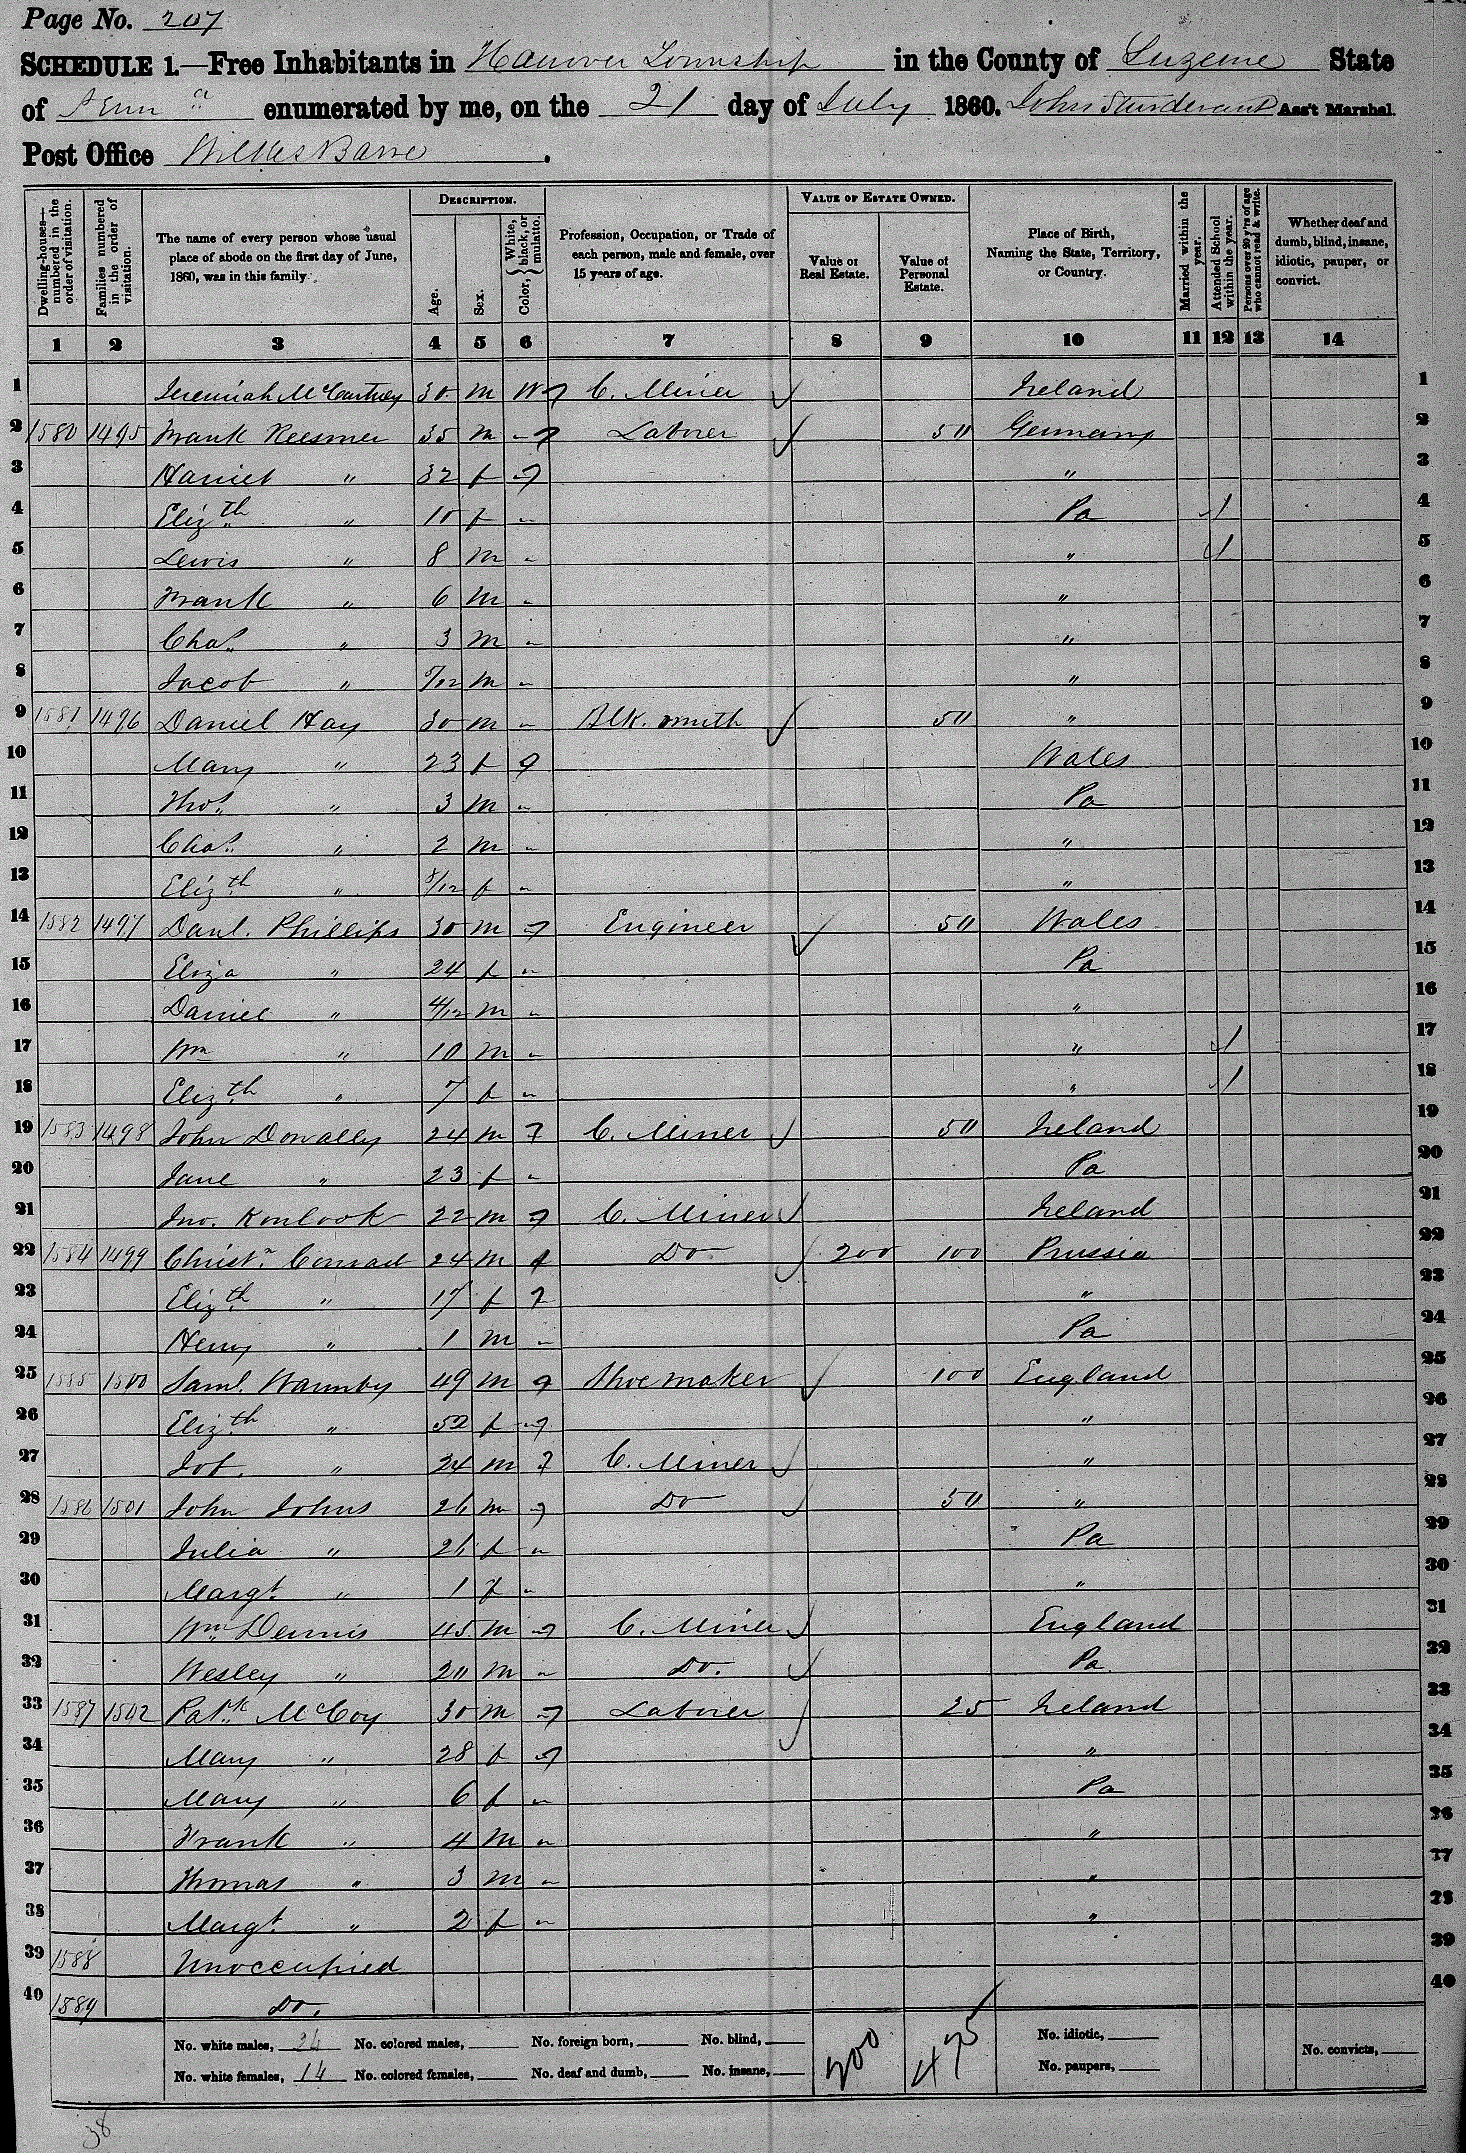 Page No. 207
SCHEDULE 1.—Free Inhabitants in Hanover Township in the County of Luzerne State
of Penna enumerated by me, on the 21 day of July 1860. John Sturdevant Ass't Marshal.
Post Office Wilkes Barre.
Dwelling-houses—numbered in the order of visitation.
Families numbered in the order of visitation.
The name of every person whose usual place of abode on the first day of June, 1860, was in this family.
DESCRIPTION.
Age.
Sex.
Color, White, black, or mulatto.
Profession, Occupation, or Trade of each person, male and female, over 15 years of age.
VALUE OF ESTATE OWNED.
Value of Real Estate.
Value of Personal Estate.
Place of Birth, Naming the State, Territory, or Country.
Married within the year.
Attended School within the year.
Persons over 20 y'rs of age who cannot read & write.
Whether deaf and dumb, blind, insane, idiotic, pauper, or convict.
1 2 3 4 5 6 7 8 9 10 11 12 13 14
1 Jeremiah McCartney 30 m W C. Miner Ireland 1
2 1580 1495 Frank Reesmer 35 m " Laborer 50 Germany 2
3 Harriet " 32 f " " 3
4 Elizth " 10 f " Pa / 4
5 Lewis " 8 m " " / 5
6 Frank " 6 m " " 6
7 Chas " 3 m " " 7
8 Jacob " /12 m " " 8
9 1581 1496 Daniel Hay 30 m " Blk. smith 50 " 9
10 Mary " 23 f " Wales 10
11 Thos " 3 m " Pa 11
12 Chas " 2 m " " 12
13 Elizth " 8/12 f " " 13
14 1582 1497 Danl. Phillips 30 m " Engineer 50 Wales 14
15 Eliza " 24 f " Pa 15
16 Daniel " 4/12 m " " 16
17 Wm " 10 m " " / 17
18 Elizth " 7 f " " / 18
19 1583 1498 John Donally 24 m " C. Miner 50 Ireland 19
20 Jane " 23 f " Pa 20
21 Jno. Kinlock 22 m " C. Miner Ireland 21
22 1584 1499 Christn Conrad 24 m " Do 200 100 Prussia 22
23 Elizth " 17 f " " 23
24 Henry " 1 m " Pa 24
25 1585 1500 Saml. Warmby 49 m " Shoemaker 100 England 25
26 Elizth " 52 f " " 26
27 Job. " 24 m " C. Miner " 27
28 1586 1501 John Johns 26 m " Do 50 " 28
29 Julia " 26 f " Pa 29
30 Margt. " 1 f " " 30
31 Wm Dennis 45 m " C. Miner England 31
32 Wesley " 20 m " Do. Pa 32
33 1587 1502 Patk McCoy 30 m " Laborer 25 Ireland 33
34 Mary " 28 f " " 34
35 Mary " 6 f " Pa 35
36 Frank " 4 m " " 36
37 Thomas " 3 m " " 37
38 Margt. " 2 f " " 38
39 1588 Unoccupied 39
40 1589 Do. 40
No. white males, 24 No. colored males, No. foreign born, No. blind, 200 475 No. idiotic, No. convicts,
No. white females, 14 No. colored females, No. deaf and dumb, No. insane, No. paupers,
38